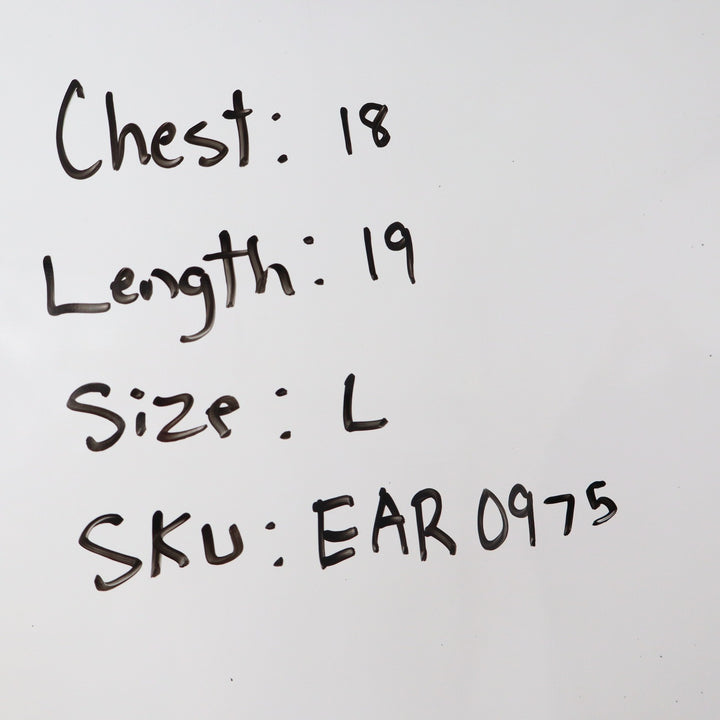 Chest: 18
Length: 19
Size: L
SKU: EAR 0975